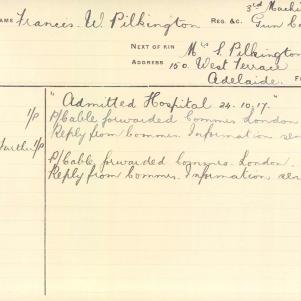 3rd Machi
NAME Frances. W. Pilkington REG. &C. Gun Co
NEXT OF KIN Mrs S. Pilkington
ADDRESS 150. West Terrace
Adelaide. F
"Admitted Hospital 24.10.17."
I/P P/Cable forwarded Commrs London
Reply from Commrs. Information sen
Further I/P P/Cable forwarded Commrs. London.
Reply from Commrs. Information sen